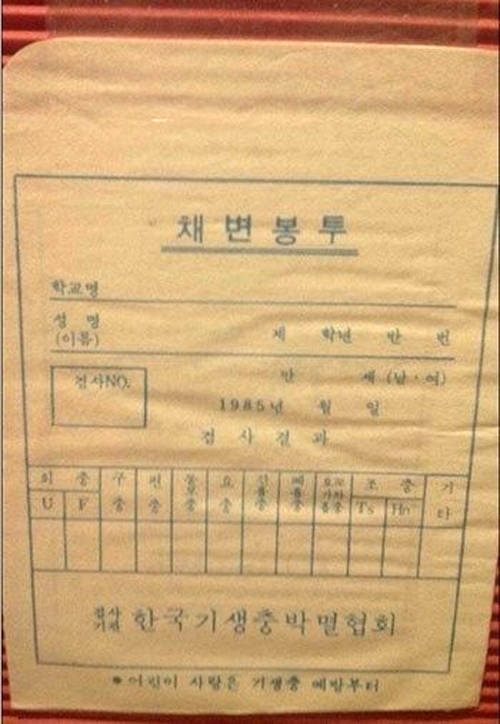 채변봉투
학교명
성 명
(이름)
제 학년 반 번
검사NO.
만 세 (남·여)
1985년 월 일
검사결과
회 충 구충 편충 동양충 요충 간흡충 폐흡충 요꼬가와흡충 조 충 기타
U F Ts Hn
검사기관 한국기생충박멸협회
*어린이 사랑은 기생충 예방부터